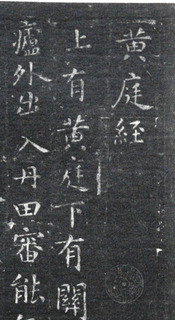 黃庭經
上有黃庭下有關
廬外出入丹田審能